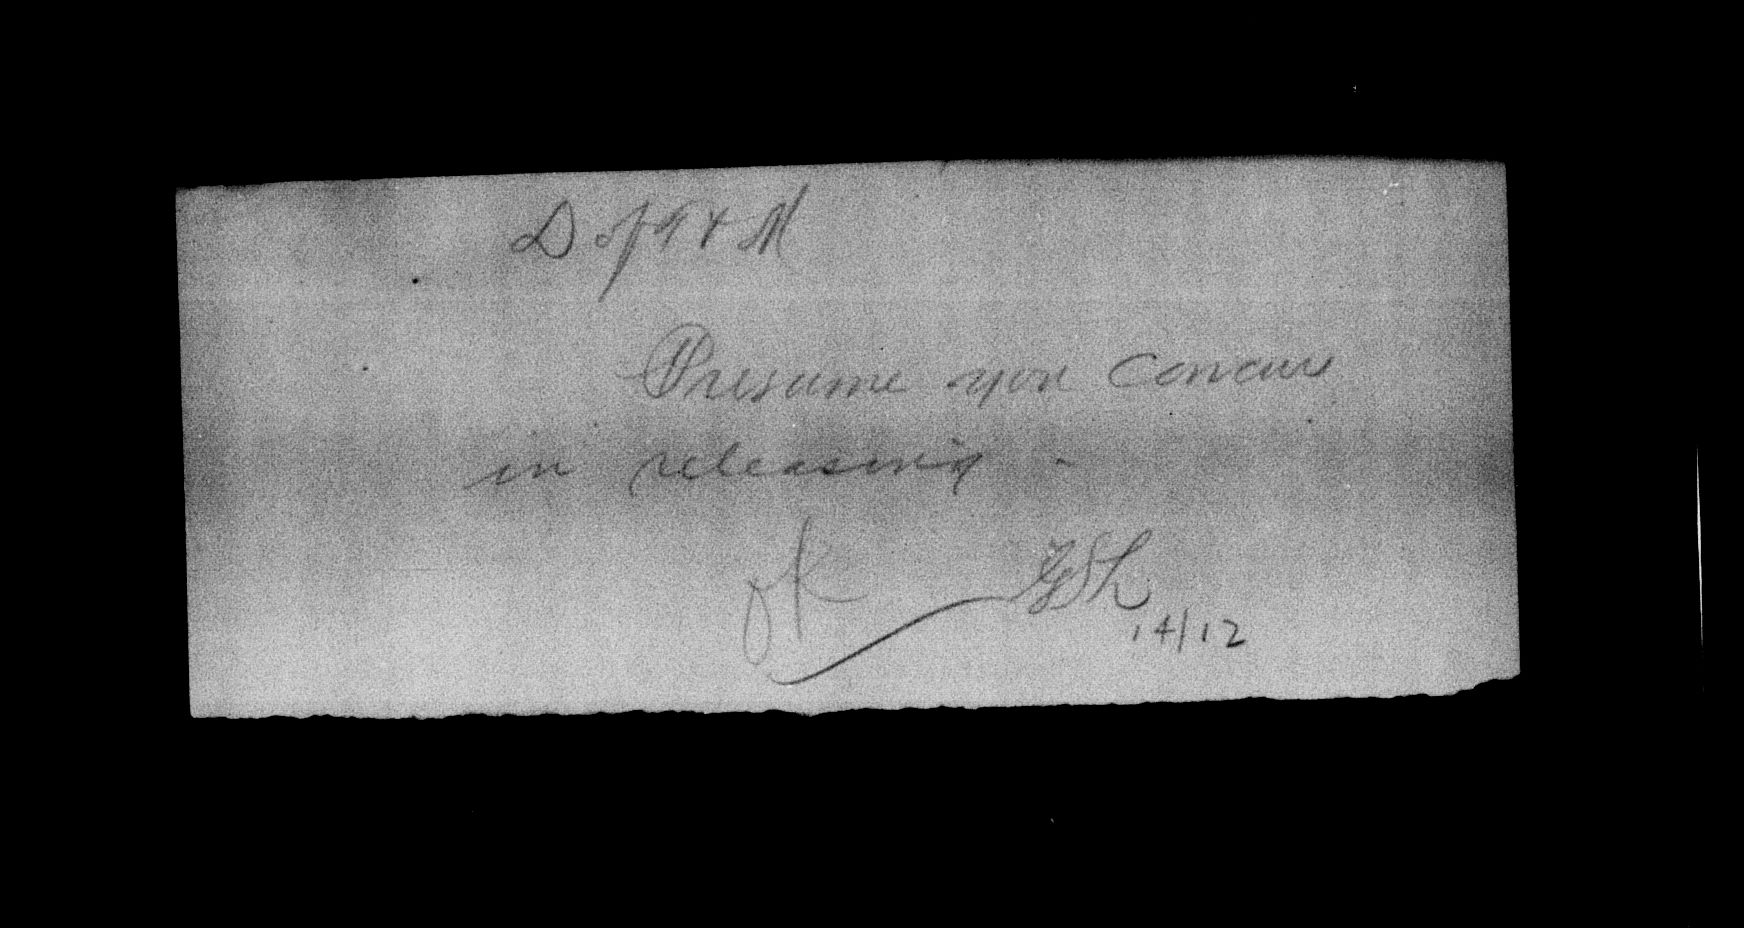 D of T & M
Presume you concur
in releasing -
OK
14/12